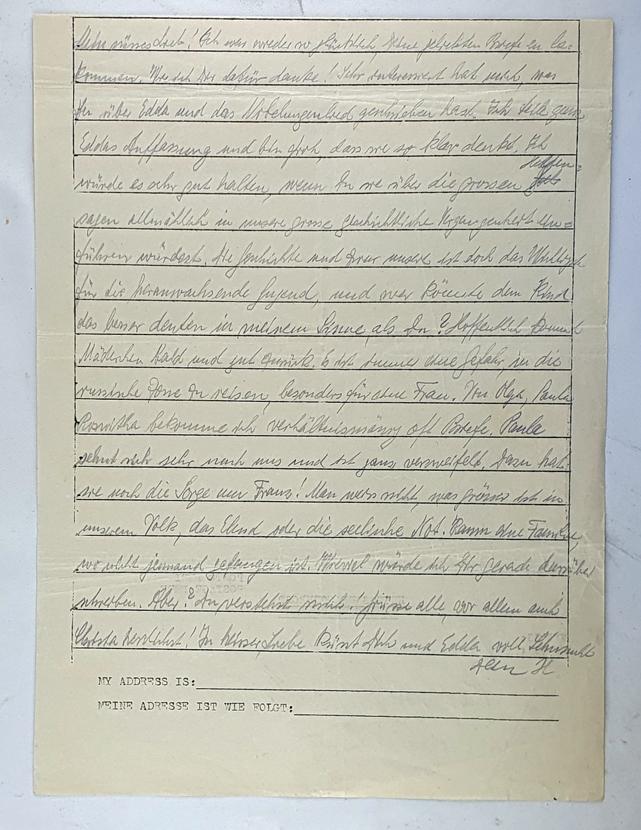 Mein süsses Lieb! Ich war wieder so glücklich, Deine geliebten Briefe zu be-
kommen. Wie ich Dir dafür danke! Sehr interessiert hat mich, was
Du über Edda und das Nibelungenlied geschrieben hast. Ich teile ganz
Eddas Auffassung und bin froh, dass sie so klar denkt. Ich
würde es sehr gut halten, wenn Du sie über die grossen Helden-
sagen allmählich in unsere grosse geschichtliche Vergangenheit ein=
führen würdest. Die Geschichte und zwar unsere ist doch das Wichtigste
für die heranwachsende Jugend, und wer könnte dem Kind
das besser deuten in meinem Sinne, als Du? Hoffentlich kommt
Mädchen bald und gut zurück. Es ist immer eine Gefahr in die
russische Zone zu reisen, besonders für eine Frau. Von Olga, Paula
Roswitha bekomme ich verhältnismässig oft Briefe. Paula
sehnt sich sehr nach uns und ist ganz verzweifelt. Dazu hat
sie noch die Sorge um Franz! Man weiss nicht, was grösser ist in
unserem Volk, das Elend oder die seelische Not. Kaum eine Familie,
wo nicht jemand gefangen ist. Wieviel würde ich Dir gerade darüber
schreiben. Aber? Du verstehst mich. Grüsse alle, vor allem auch
Christa herzlichst! In heisser Liebe küsst Dich und Edda voll Sehnsucht
Dein H
MY ADDRESS IS:
MEINE ADRESSE IST WIE FOLGT: